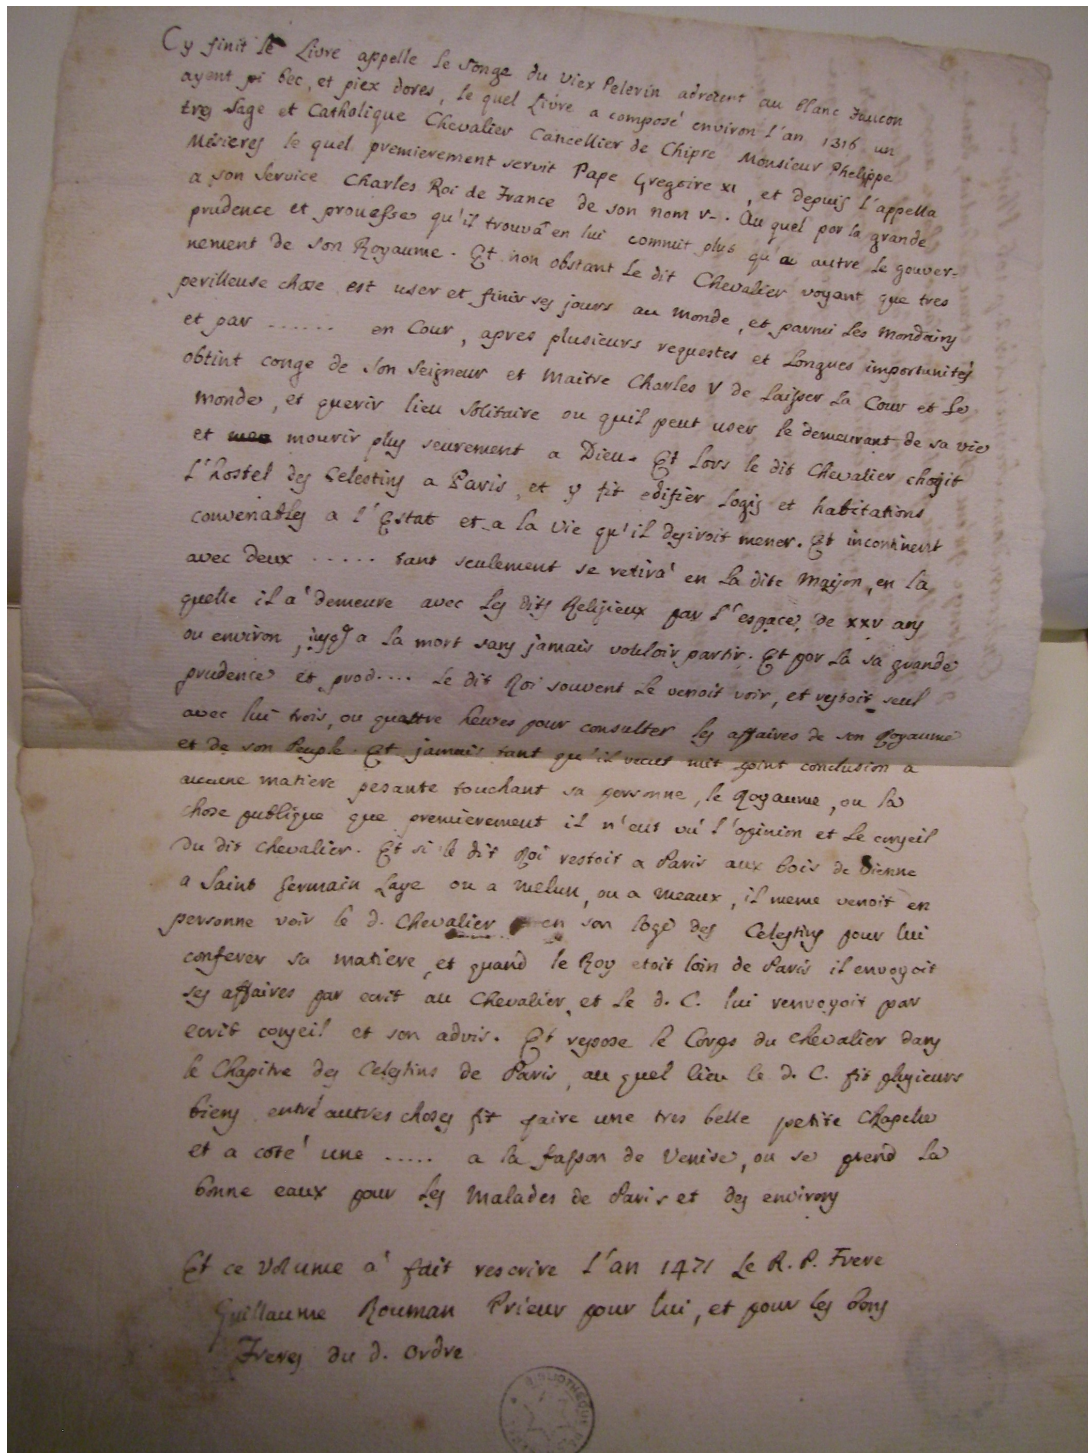 Cy finit le Livre appelle le songe du vier Pelerin adreient au blanc faucon
ayent bec, et piez dores, le quel Livre a composé environ l'an 1316 un
tres sage et Catholique Chevalier Cancellier de Chipre Monsieur Phelippe
Mesieres le quel premierement servit Pape Gregoire XI, et depuis l'appella
a son service Charles Roi de France de son nom V-. Au quel por la grande
prudence et prouesse qu'il trouvá en lui commit plus qu'a autre le gouver-
nement de son Royaume. Et non obstant le dit Chevalier voyant que tres
perilleuse chose est user et finir ses jours au monde, et parmi les mondains
et par ...... en Cour, apres plusieurs requestes et longues importunités
obtint conge de son seigneur et maitre Charles V de laisser la Cour et le
monde, et querir lieu solitaire ou quil peut user le demeurant de sa vie
et mourir plus seurement a Dieu. Et lors le dit Chevalier choisit
l'hostel des Celestins a Paris, et y fit edifier logis et habitations
convenables a l'Estat et a la vie qu'il desiroit mener. Et incontinent
avec deux ..... tant seulement se retirá en la dite maison, en la
quelle il á demeure avec les dits Religieux par l'espace de XXV ans
ou environ, jusq a la mort sans jamais vouloir partir. Et por la sa grande
prudence et prod.... le dit Roi souvent le venoit voir, et restoit seul
avec lui trois, ou quattre heures pour consulter les affaires de son Royaume
et de son Peuple. Et jamais tant qu'il vecut mit point conclusion a
aucune matiere pesante touchant sa personne, le Royaume, ou la
chose publique que premierement il n'eut vú l'opinion et le conseil
du dit Chevalier. Et si le dit Roi restoit a Paris aux bois de Vienne
a Saint Germain Laye ou a Melun, ou a Meaux, il meme venoit en
personne voir le d. Chevalier en son loge des Celestins pour lui
conferer sa matiere, et quand le Roy etoit loin de Paris il envoyoit
ses affaires par ecrit au Chevalier, et le d. C. lui renvoyoit par
ecrit conseil et son advis. Et repose le Corps du Chevalier dans
le Chapitre des Celestins de Paris, au quel lieu le d. C. fit plusieurs
biens entre autres choses fit faire une tres belle petite Chapelle
et a coté une ..... a la fasson de Venise, ou se prend la
bonne eaux pour les malades de Paris et des environs
Et ce volume á fait rescrire l'an 1471 le R. P. Frere
Guillaume Rouman Prieur pour lui, et pour les bons
Freres du d. ordre
BIBLIOTHEQUE DE